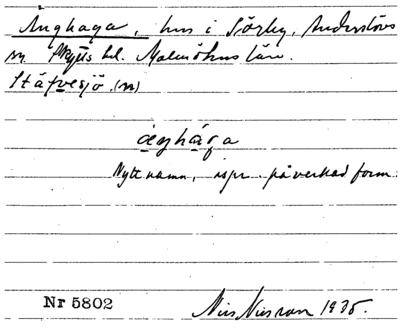 Änghaga, hus i Sörby, Anderslövs
sn. Skytts hd. Malmöhus län.
Stäfvesjö (m)
äŋhága
Nytt namn, rspr. påverkad form.
Nr 5802
Nils Nilsson 1935.